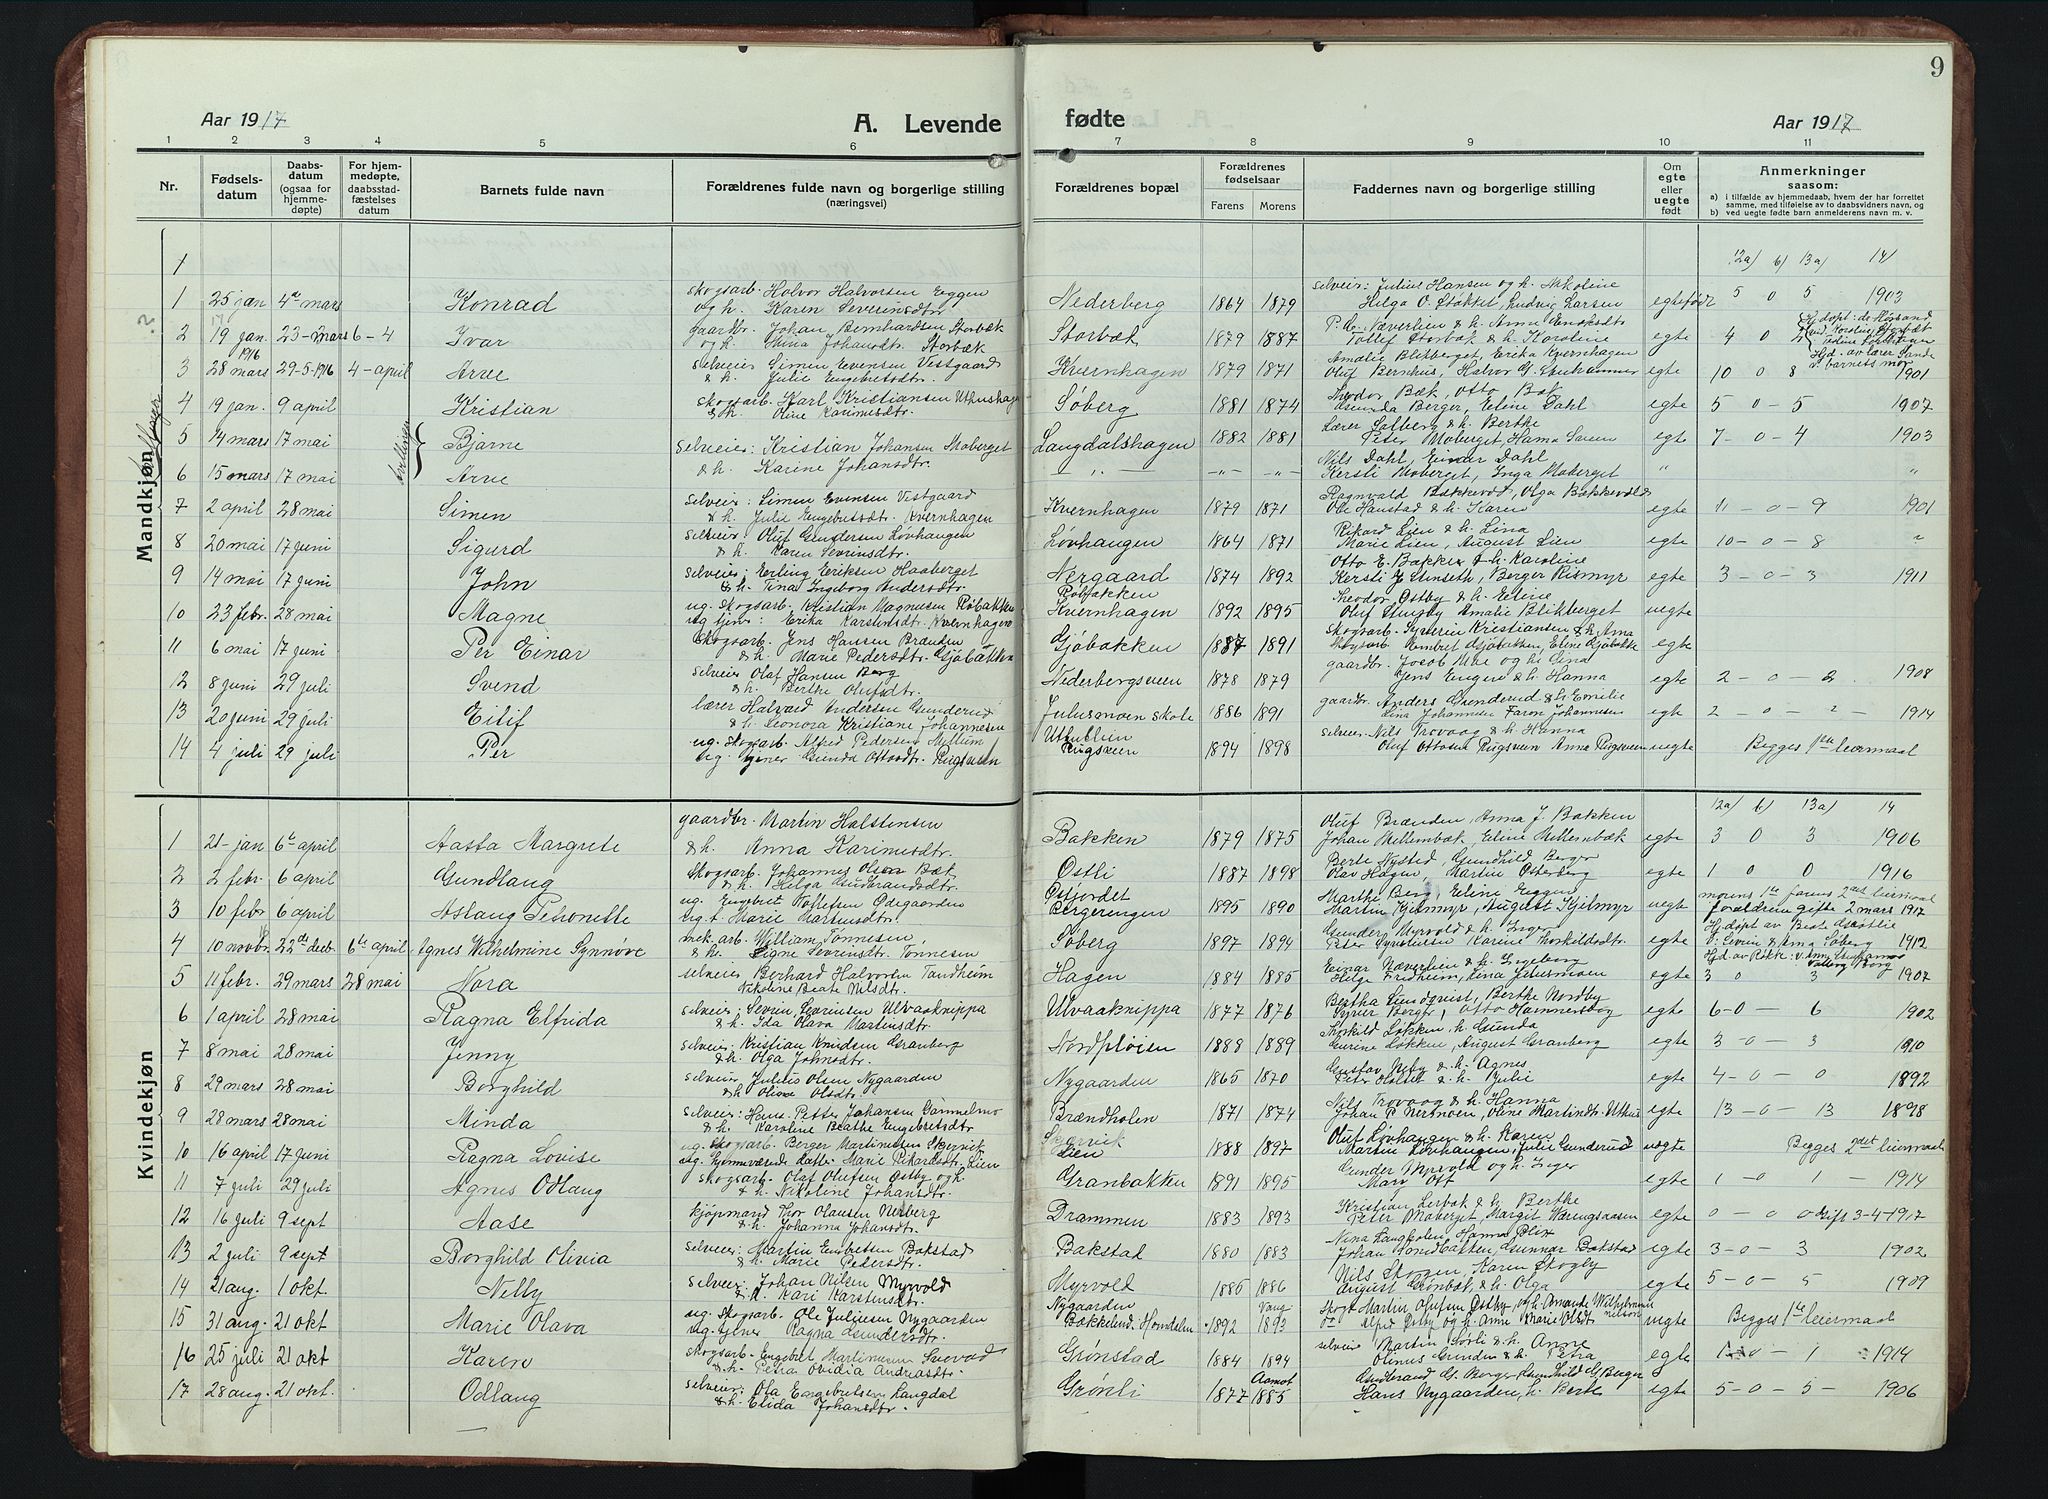 9
Aar 1917
A. Levende fødte
Aar 1917
1 2 3 4 5 6 7 8 9 10 11
Nr.
Fødsels-
datum
Daabs-
datum
(ogsaa for
hjemme-
døpte)
For hjem-
medøpte,
daabsstad-
fæstelses
datum
Barnets fulde navn
Forældrenes fulde navn og borgerlige stilling
(næringsvei)
Forældrenes bopæl
Forældrenes
fødselsaar
Farens Morens
Faddernes navn og borgerlige stilling
Om
egte
eller
uegte
født
Anmerkninger
saasom:
a) i tilfælde av hjemmedaab, hvem der har forrettet
samme, med tilføielse av to daabsvidners navn, og
b) ved uegte fødte barn anmelderens navn m. v.
Mandkjøn
1
12a) 6) 13a) 14)
1 25 jan 4de mars Konrad skogsarb. Halvor Halvorsen Eggen Nederberg 1864 1879 selveier: Julius Hansen og h. Nikoline egtefødt 5 0 5 1903
og h. Karen Severinsdtr. Helga O. Stokket, Ludvig Larsen
2 19 jan. 23-mars 6-4 Ivar gaardbr. Johan Bernhardsen Storbæk Storbæk 1879 1887 Tollef Storbæk & h. Karoline egte 4 0
og h. Mina Johansdtr. Storbæk
1916
3 28 mars 29-5-1916 4-april Arve selveier Simen Evensen Vestgaard Kvernhagen 1879 1871 Amalie Blikberget, Erika Kvernhagen egte 10 0 8 1901
& h. Julie Engebretsdtr. Oluf Bernhus, Halvor G.
4 19 jan. 9 april Kristian skogsarb. Karl Kristiansen Uthushagen Søberg 1881 1874 Theodor Bæk, Otto Bæk egte 5 - 0 - 5 1907
& h. Oline Karinusdtr. Gunda Berger, Eline Dahl
tvillinger
5 14 mars 17 mai Bjarne selveier: Kristian Johansen Moberget Langdalshagen 1882 1881 Lærer Salberg & h. Berthe egte 7 - 0 - 4 1903
& h. Karine Johansdtr. Peter Moberget, Hanna Sareen
6 15 mars 17 mai Arve Nils Dahl, Einar Dahl
Kersti Moberget, Inga Moberget
7 2 april 28 mai Simen selveier: Simen Evensen Vestgaard Kvernhagen 1879 1871 Ragnvald Bækkevold, Olga Bækkevold egte 11 - 0 - 9 1901
& h. Julie Engebretsdtr. Kvernhagen Ole Hanstad & h. Karen
8 20 mai 17 juni Sigurd selveier Oluf Gundersen Løvhaugen Løvhaugen 1864 1871 Rikard Lien & h. Lina egte 10 - 0 - 8 "
& h. Karen Sevrinsdtr. Marie Lien, August Lien
9 14 mai 17 juni John selveier: Erling Eriksen Haaberget Nergaard 1874 1892 Otto E. Bakken & h. Karoline egte 3 - 0 - 3 1911
& h. Tina Ingeborg Andersdtr. Kersti G. Stenseth, Berger Rismyr
10 23 febr. 28 mai Magne ug. skogsarb. Kristian Magnusen Røbakken Røbakken 1892 1895 Theodor Østby & h. Eline uegte
ug tjen: Erika Karstensdtr. Kvernhagen Kvernhagen Oluf Slugby, Amalie Blikberget
11 6 mai 17 juni Per Einar skogsarb. Jens Hansen Brænden Gjøbakken 1887 1891 skogsarb. Syverin Kristiansen & h. Anna egte
& h. Marie Pedersdtr. Gjøbakken skogsarb. Embret Gjøbakken, Eline Gjøbakke
12 8 juni 29 juli Svend selveier Olaf Hansen Berg Nederbergsveen 1878 1879 gaardbr. Jacob Moe og h. Lina egte 2 - 0 - 2. 1908
& h. Berthe Olufsdtr. Jens Eggen & h. Hanna
13 20 juni 29 juli Eilif lærer Halvard Andersen Gunderud Julusmoen skole 1886 1891 gaardbr. Anders Gunderud & h Emilie egte 2 - 0 - 2 - 1914
& h. Leonora Kristiane Johannesen Lina Johannesen Faron Johannesen
14 4 juli 29 juli Per ug. skogsarb. Alfred Pedersen Mellum Uthuslien 1894 1898 selveier Nils Trovaag & h. Hanna uegte Begges 1ste leiermaal
ug. tjener Gunda Ottosdtr. Rugsveen Rugsveen Oluf Ottosen Rugsveen Anna Rugsveen
Kvindekjøn
12a) 6) 13a) 14
1 21-jan 6te april Aasta Margrete gaardbr. Martin Halstensen Bakken 1879 1875 Oluf Brænden, Anna J. Bakken egte 3 0 3 1906
& h. Anna Karinusdtr. Johan Mellembæk, Eline Mellembæk
2 2 febr. 6 april Gundlaug skogsarb. Johannes Olsen Bæk Østli 1887 1898 Berte Nysted, Gundhild Berger egte 1 0 0 1916
& h. Helga Gudbrandsdtr. Olav Hagen, Martine Østerberg
3 10 febr 6 april Aslaug Petronelle ug. Engebret Tollefsen Ødegaarden Østfjordet 1895 1890 Marthe Berg, Eline Eggen uegte morens 1ste farens 2det leiermaal
ug. t. Marie Martinsdtr. Bergerengen Martin Kjilmyr, August Kjilmyr forældrene gifte 2 mars 1917
4 10 novbr. 22de decb. 6te april Agnes Wilhelmine Synnøve mek. arb. William Tønnesen, Søberg 1897 1894 Gunder Myrvold & h. Inger egte
& h. Signe Sevrensdtr. Tønnesen Peter Syvertsen Karine Thorkildsdtr. 1912
5 11 febr. 29 mars 28 mai Nora selveier Berhard Halvorsen Tandheim Hagen 1884 1885 Einar Næverlien & h. Ingeborg egte 3 0 3 1907
Nikoline Beate Nilsdtr. Helge Fridheim, Lina Julusmoen
6 1 april 28 mai Ragna Elfrida selveier; Sevrin Sevrinsen Ulvaaknippa Ulvaaknippa 1877 1876 Bertha Lundqvist, Berthe Nordby egte 6 - 0 - 6 1902
& h. Ida Olava Martinsdtr. Syver Berger, Otto Hammersbog
7 8 mai 28 mai Jenny selveier: Kristian Knudsen Granberg Nordpløien 1888 1889 Thorkild Løkken, h. Gunda egte 3 - 0 - 3 1910
& h. Olga Johnsdtr. Gurine Løkken, August Granberg
8 29 mars 28 mai Borghild selveier Julius Olsen Nygaarden Nygaarden 1865 1870 Gustav Nyby & h. Agnes egte 4 - 0 - 0 1892
& h Oline Olsdtr. Peter Holset & h. Julie
9 28 mars 28 mai Minda selveier: Hans Petter Johansen Gammelmo Brændholen 1871 1874 Nils Trovaag & h. Hanna egte 13 - 0 - 13 1898
& h. Karoline Beathe Engebretsdtr. Johan P. Nermoen, Oline Martindtr. Uthus
10 16 april 17 juni Ragna Lovise ug. skogsarb. Berger Martinusen Skjervik Skjærvik 1888 1897 Oluf Løvhaugen & h. Karen uegte Begges 2det leiermaal
ug. hjemmeværende datter Marie Rikardsdtr. Lien Lien Martin Løvhaugen, Julie Gunderud
11 7 juli 29 juli Agnes Odlaug skogsarb. Olaf Olufsen Østby og h. Granbakken 1891 1895 Gunder Myrvold og h. Inger egte 1 - 0 1 - 1914
& h. Nikoline Johansdtr. Mari Oft
12 16 juli 9 sept Aase kjøpmand Thor Olausen Nerberg Drammen 1883 1893 Kristian Lerbæk & h. Berthe egte 0 - 0 0 Gift 3-4-1917
& h. Johanna Johansdtr. Peter Moberget, Margit Væringsaasen
13 2 juli 9 sept Borghild Olivia selveier: Martin Engebretsen Bakstad Bakstad 1880 1883 Nina Langholen, Hanna Blix egte 3 - 0 - 3 1902
& h. Marie Pedersdtr. Johan Sundbakken, Gunnar Bakstad
14 21 aug. 1 okt Nelly selveier Johan Nilsen Myrvold Myrvold 1885 1886 Nils Skogen, Karen Skogby egte 5 - 0 - 5 1909
& h. Kari Karstensdtr. August Grønbæk & h. Olga
15 31 aug. 21 okt Marie Olava ug. skogsarb. Ole Juliusen Nygaarden Nygaarden 1892 Vang 1893 Martin Olufsen Østby, og h. Amanda Wilhelmine uegte Begges 1ste leiermaal
ug. tjener Ragna Gundersdtr. Alfred Østby og h. Anne Marie Olsdtr
16 25 juli 21 okt Karen skogsarb. Engebret Martinusen Svevad Grønstad 1884 1894 selveier Martin Sørli & h. Anne egte 1 - 0 - 1 1914
& h. Petra Ovidia Andreasdtr. Olinus Grunden & h. Petra
17 28 aug. 21 okt. Odlaug selveier Ola Engebretsen Langdal Grønli 1877 Aamot 1885 Gudbrand G. Berger Gundhild G. Berger egte 5 - 0 - 5 - 1906
& h. Elida Johansdtr. Hans Nygaarden, h. Berte